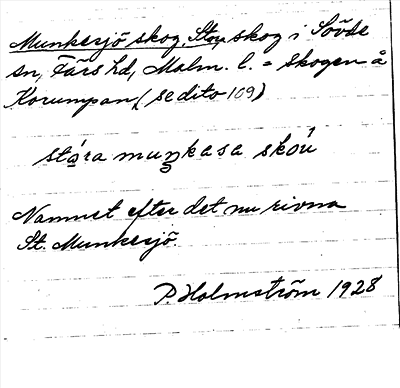 Munkesjö skog, Stou skog i Sövde
sn, Färs hd, Malm. l. = Skogen å
Korumpan (se dito 109)
stǫ́ra muŋkasa skóu
Namnet efter det nu rivna
St. Munkesjö.
P. Holmström 1928